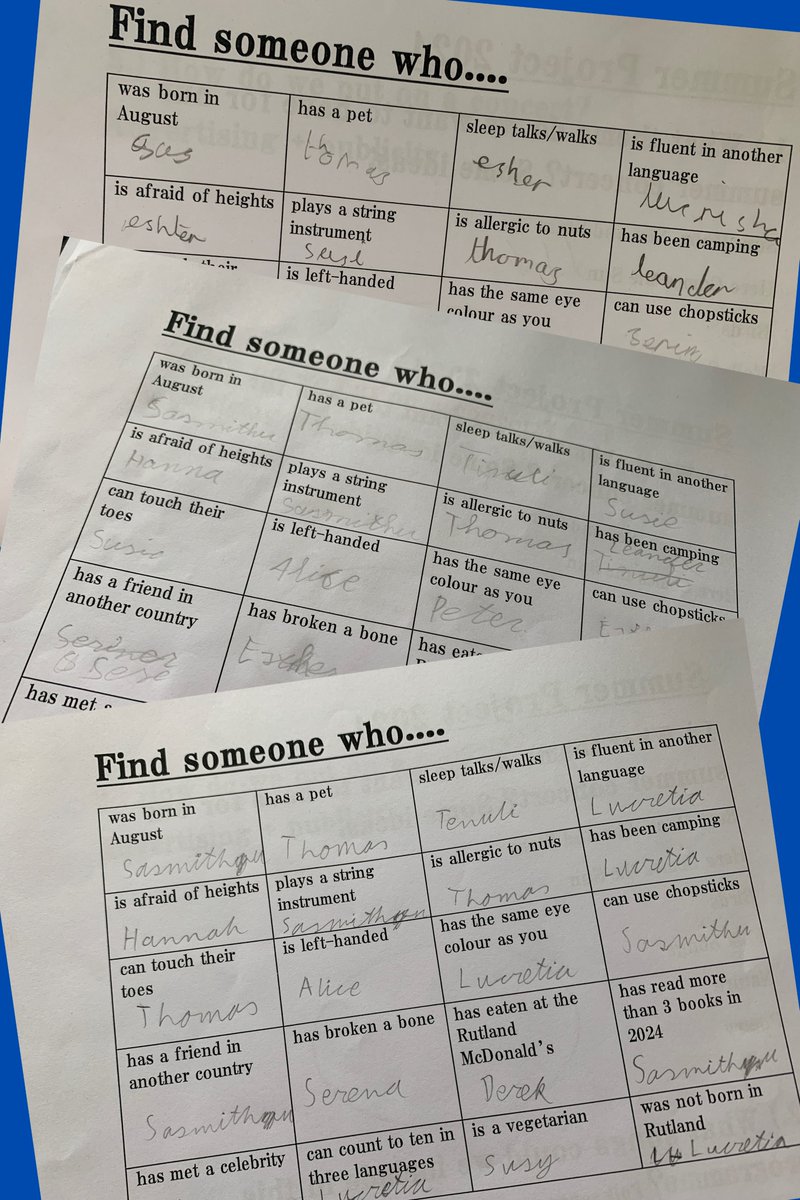 Find someone who....
was born in
August
has a pet
thomas
sleep talks/walks
esher
is fluent in another
language
is afraid of heights
eshter
plays a string
instrument
is allergic to nuts
thomas
has been camping
leander
is left-handed
has the same eye
colour as you
can use chopsticks
Find someone who....
was born in
August
Sasmithu
has a pet
Thomas
sleep talks/walks
Tinuli
is fluent in another
language
Susie
is afraid of heights
Hanna
plays a string
instrument
Sasmithu
is allergic to nuts
Thomas
has been camping
Leander
can touch their
toes
Susie
is left-handed
Alice
has the same eye
colour as you
Peter
can use chopsticks
has a friend in
another country
has broken a bone
has met
Find someone who....
was born in
August
has a pet
Thomas
sleep talks/walks
Tenuli
is fluent in another
language
Lucretia
is afraid of heights
Hannah
plays a string
instrument
is allergic to nuts
Thomas
has been camping
Lucretia
can touch their
toes
Thomas
is left-handed
Alice
has the same eye
colour as you
Lucretia
can use chopsticks
Sasmithu
has a friend in
another country
has broken a bone
Serena
has eaten at the
Rutland
McDonald's
Derek
has read more
than 3 books in
2024
has met a celebrity
can count to ten in
three languages
Lucretia
is a vegetarian
Susy
was not born in
Rutland
Lucretia